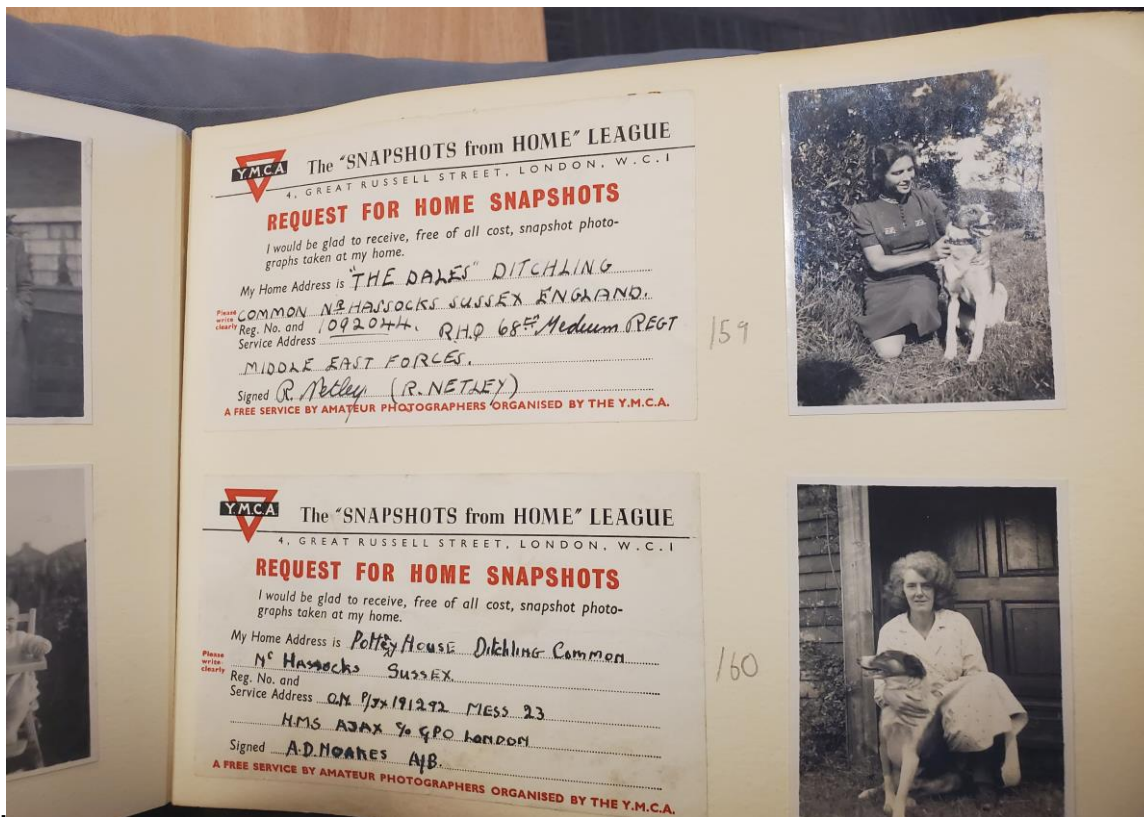 Y.M.C.A
The "SNAPSHOTS from HOME" LEAGUE
4, GREAT RUSSELL STREET, LONDON, W.C.1
REQUEST FOR HOME SNAPSHOTS
I would be glad to receive, free of all cost, snapshot photo-
graphs taken at my home.
My Home Address is "THE DALES" DITCHLING
COMMON Nr HASSOCKS SUSSEX ENGLAND.
Please write clearly
Reg. No. and
Service Address 1092044. RHQ 68th Medium REGT
MIDDLE EAST FORCES.
Signed R. Netley (R. NETLEY)
A FREE SERVICE BY AMATEUR PHOTOGRAPHERS ORGANISED BY THE Y.M.C.A.
159
Y.M.C.A
The "SNAPSHOTS from HOME" LEAGUE
4, GREAT RUSSELL STREET, LONDON, W.C.1
REQUEST FOR HOME SNAPSHOTS
I would be glad to receive, free of all cost, snapshot photo-
graphs taken at my home.
My Home Address is House Ditchling Common
Nr Hassocks Sussex
Please write clearly
Reg. No. and
Service Address O.N. P/JX 191292 MESS 23
HMS AJAX c/o GPO LONDON
Signed A.D. NOAKES A/B.
A FREE SERVICE BY AMATEUR PHOTOGRAPHERS ORGANISED BY THE Y.M.C.A.
160